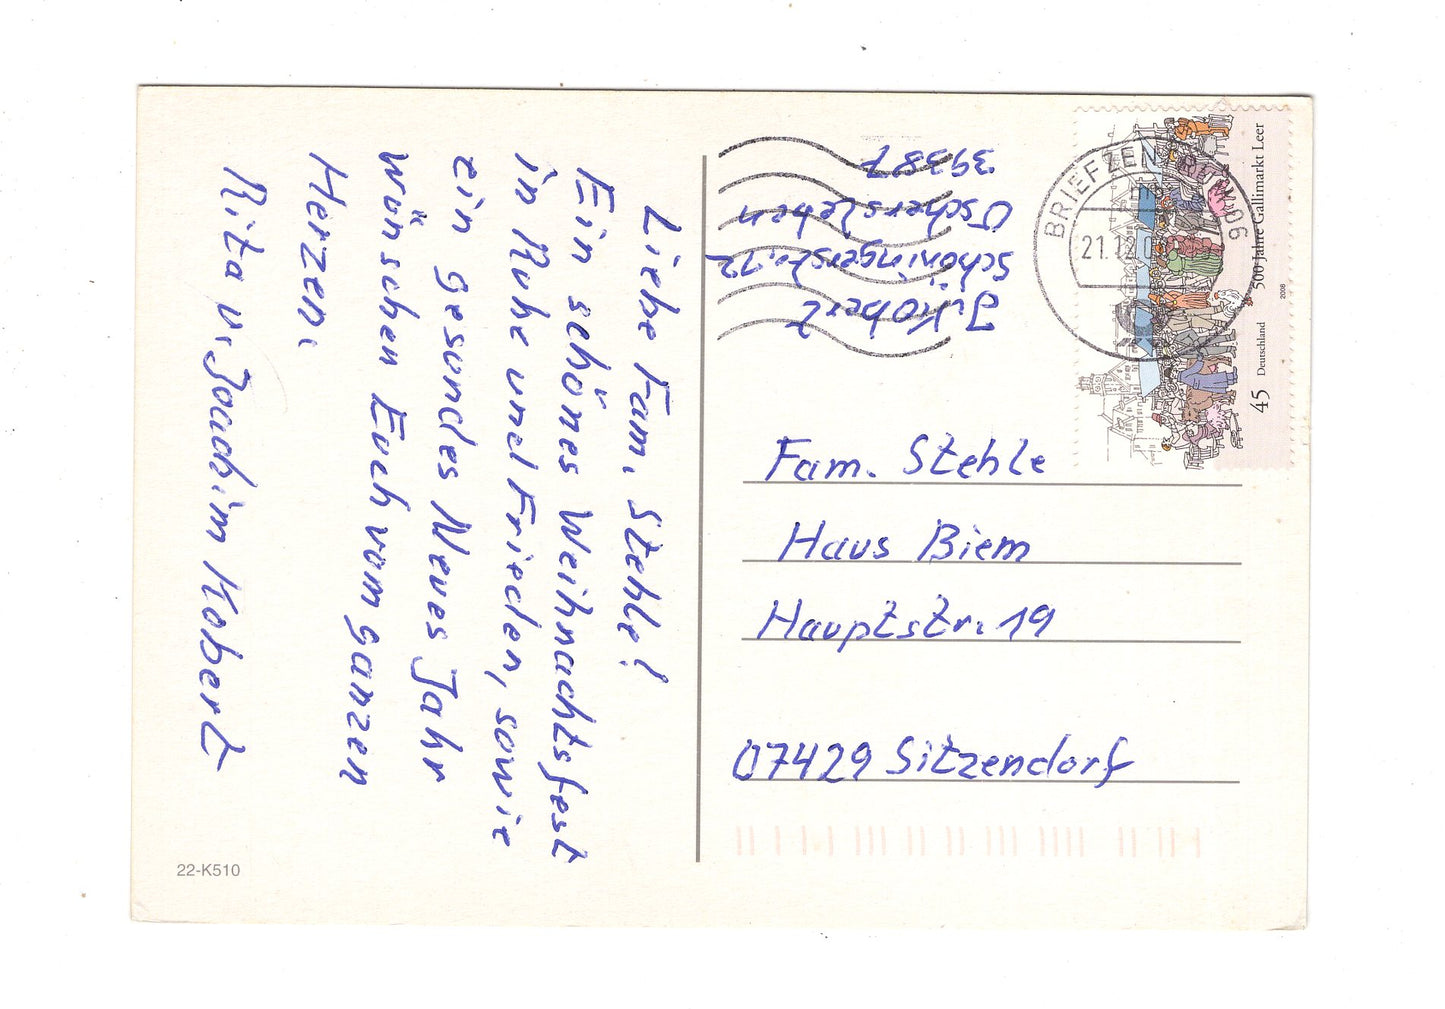 Liebe Fam. Stehle!
Ein schönes Weihnachtsfest
in Ruhe und Frieden, sowie
ein gesundes Neues Jahr
wünschen Euch vom ganzen
Herzen.
Rita u. Joachim Kobert
22-K510
J. Kobert
Schöningerstr. 72
Oschersleben
39387
BRIEFZEN 06
21.12.0
500 Jahre Gallimarkt Leer
Deutschland
45
2008
Fam. Stehle
Haus Biem
Hauptstr. 19
07429 Sitzendorf